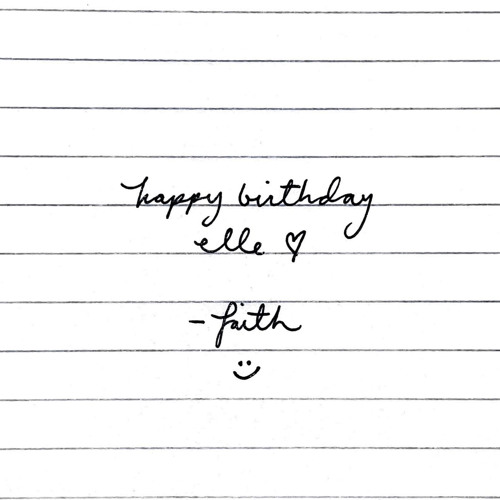 happy birthday
elle ♡
- faith